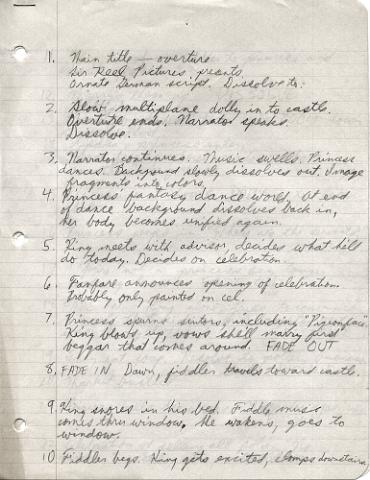 1. Main title — overture
Sir Reel Pictures presents
Ornate German script. Dissolve to:
2. Slow multiplane dolly in to castle.
Overture ends. Narrator speaks.
Dissolve.
3. Narrator continues. Music swells. Princess
dances. Background slowly dissolves out. Image
fragments into colors.
4. Princess fantasy dance world. At end
of dance background dissolves back in,
her body becomes unified again.
5. King meets with advisor, decides what he'll
do today. Decides on celebration.
6. Fanfare announces opening of celebration.
Probably only painted on cel.
7. Princess spurns suitors, including "Pigeonface".
King blows up, vows she'll marry first
beggar that comes around. FADE OUT
8. FADE IN. Dawn, fiddler travels toward castle.
9. King snores in his bed. Fiddle music
comes thru window. He wakens, goes to
window.
10. Fiddler begs. King gets excited, clomps downstairs